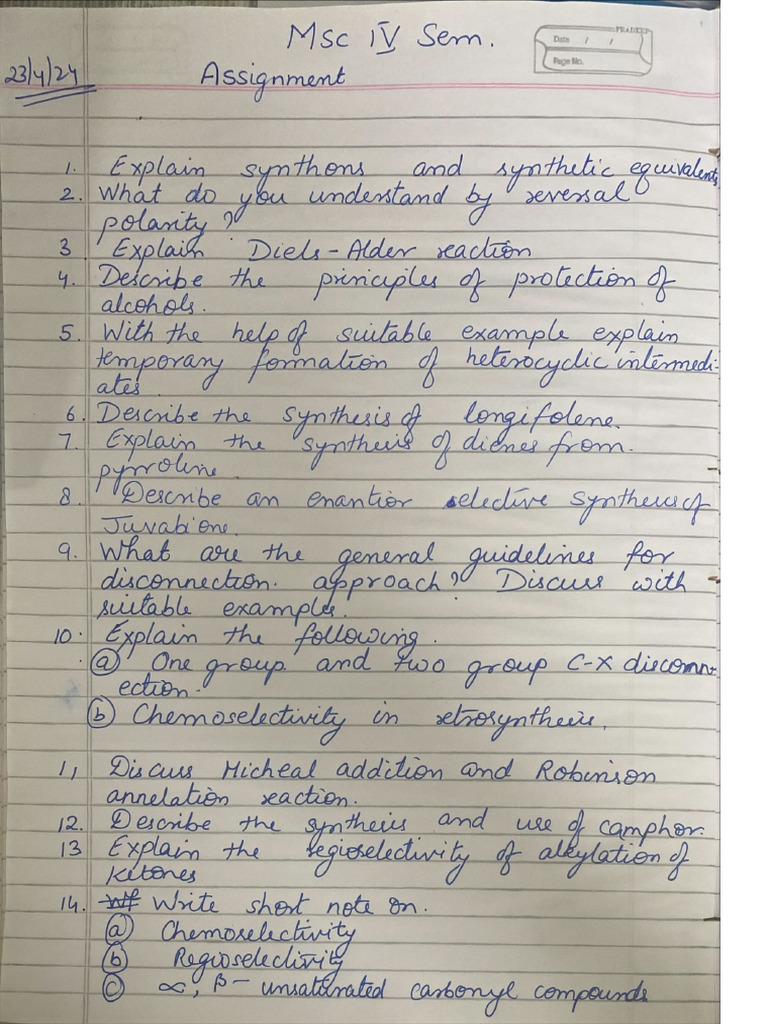 Msc IV Sem.
PRADEEP
Date / /
Page No.
23/4/24
Assignment
1. Explain synthons and synthetic equivalents
2. What do you understand by reversal
polarity?
3 Explain Diels-Alder reaction
4. Describe the principles of protection of
alcohols.
5. With the help of suitable example explain
temporary formation of heterocyclic intermedi-
ates.
6. Describe the synthesis of longifolene.
7. Explain the synthesis of dienes from.
pyrroline.
8. Describe an enantior selective synthesis of
Juvabione.
9. What are the general guidelines for
disconnection. approach? Discuss with
suitable examples.
10. Explain the following.
(a) One group and two group C-X disconn-
ection.
(b) Chemoselectivity in retrosynthesis.
11, Discuss Micheal addition and Robinson
annelation reaction.
12. Describe the synthesis and use of camphor.
13 Explain the regioselectivity of alkylation of
ketones
14. Write short note on.
(a) Chemoselectivity
(b) Regioselectivity
(c) ∝, β- unsaturated carbonyl compounds